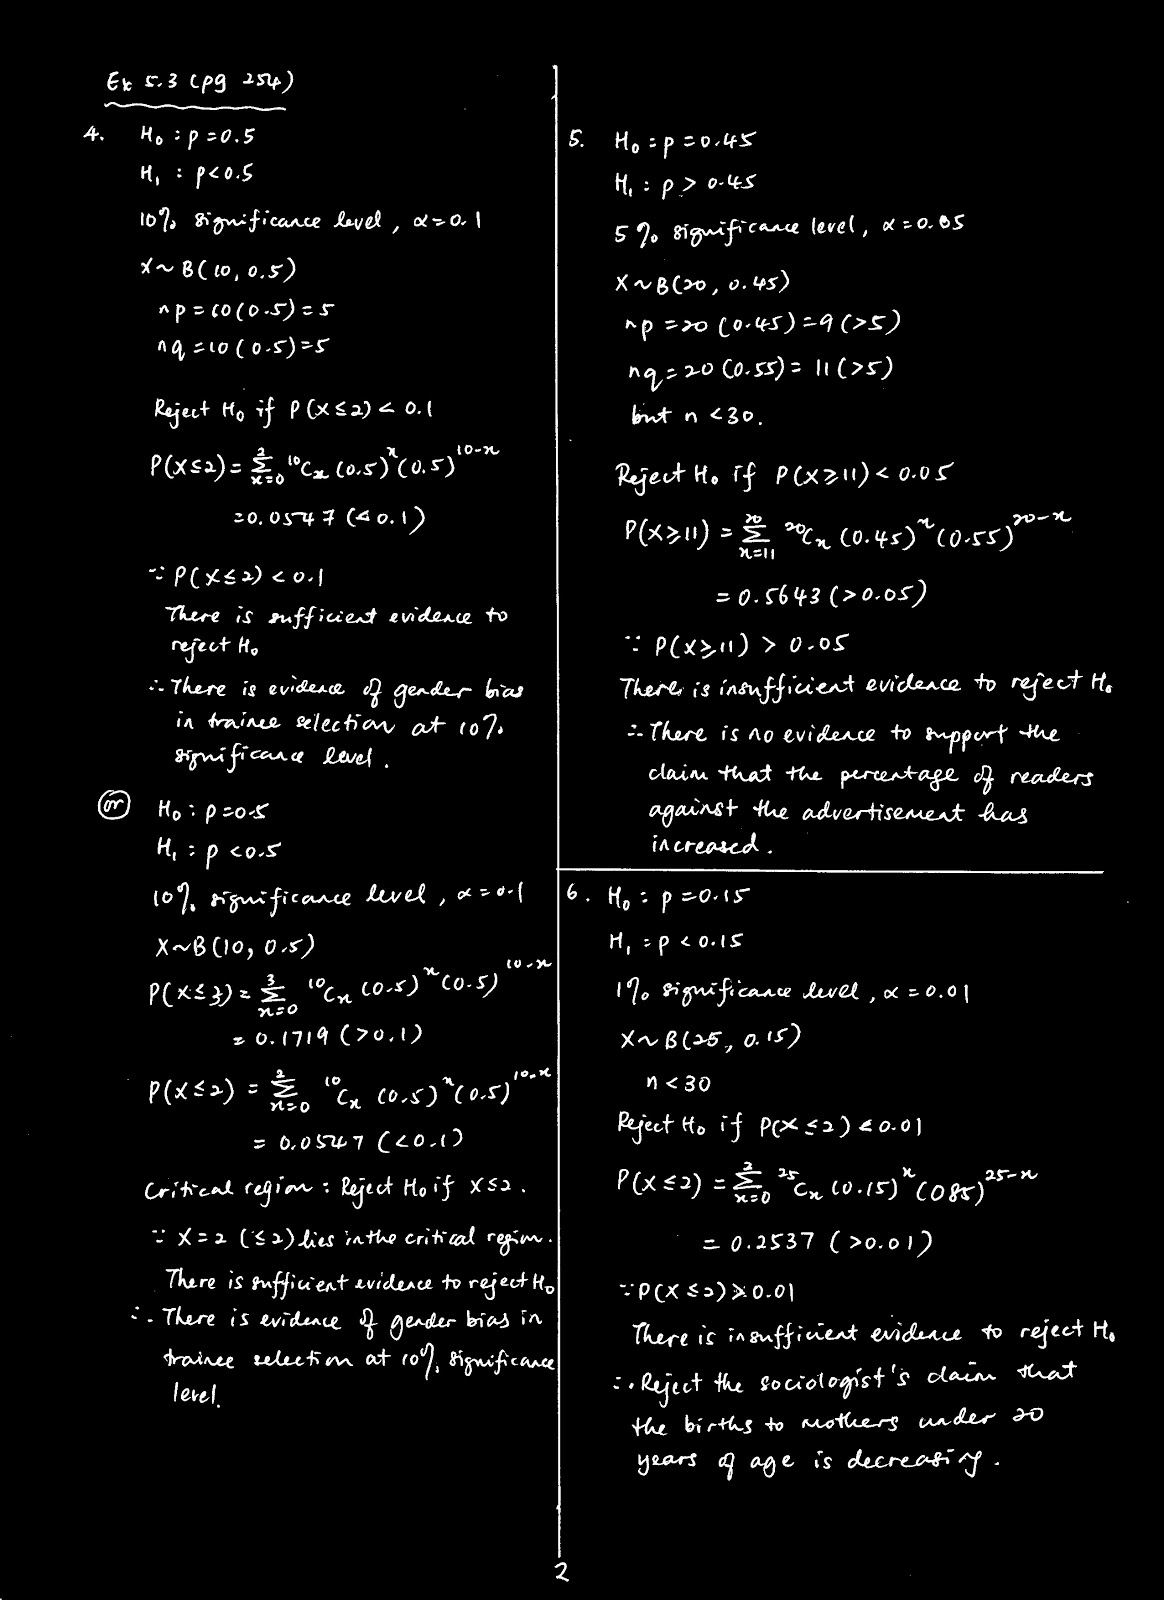 Ex 5.3 (pg 254)
4. H₀ : p = 0.5
H₁ : p < 0.5
10% significance level, α = 0.1
X ~ B(10, 0.5)
np = 10(0.5) = 5
nq = 10(0.5) = 5
Reject H₀ if P(X ≤ 2) < 0.1
P(X ≤ 2) = Σ²ₓ₌₀ ¹⁰Cₓ (0.5)ˣ (0.5)¹⁰⁻ˣ
= 0.0547 (< 0.1)
∵ P(X ≤ 2) < 0.1
There is sufficient evidence to
reject H₀
∴ There is evidence of gender bias
in trainee selection at 10%
significance level.
(or) H₀ : p = 0.5
H₁ : p < 0.5
10% significance level, α = 0.1
X ~ B(10, 0.5)
P(X ≤ 3) = Σ³ₓ₌₀ ¹⁰Cₓ (0.5)ˣ (0.5)¹⁰⁻ˣ
= 0.1719 (> 0.1)
P(X ≤ 2) = Σ²ₓ₌₀ ¹⁰Cₓ (0.5)ˣ (0.5)¹⁰⁻ˣ
= 0.0547 (< 0.1)
Critical region : Reject H₀ if X ≤ 2.
∵ X = 2 (≤ 2) lies in the critical region.
There is sufficient evidence to reject H₀
∴ There is evidence of gender bias in
trainee selection at 10% significance
level.
5. H₀ : p = 0.45
H₁ : p > 0.45
5% significance level, α = 0.05
X ~ B(20, 0.45)
np = 20(0.45) = 9 (>5)
nq = 20(0.55) = 11 (>5)
but n < 30.
Reject H₀ if P(X ≥ 11) < 0.05
P(X ≥ 11) = Σ²⁰ₓ₌₁₁ ²⁰Cₓ (0.45)ˣ (0.55)²⁰⁻ˣ
= 0.5643 (> 0.05)
∵ P(X ≥ 11) > 0.05
There is insufficient evidence to reject H₀
∴ There is no evidence to support the
claim that the percentage of readers
against the advertisement has
increased.
6. H₀ : p = 0.15
H₁ : p < 0.15
1% significance level, α = 0.01
X ~ B(25, 0.15)
n < 30
Reject H₀ if P(X ≤ 2) < 0.01
P(X ≤ 2) = Σ²ₓ₌₀ ²⁵Cₓ (0.15)ˣ (085)²⁵⁻ˣ
= 0.2537 (> 0.01)
∵ P(X ≤ 2) > 0.01
There is insufficient evidence to reject H₀
∴ Reject the sociologist's claim that
the births to mothers under 20
years of age is decreasing.
2